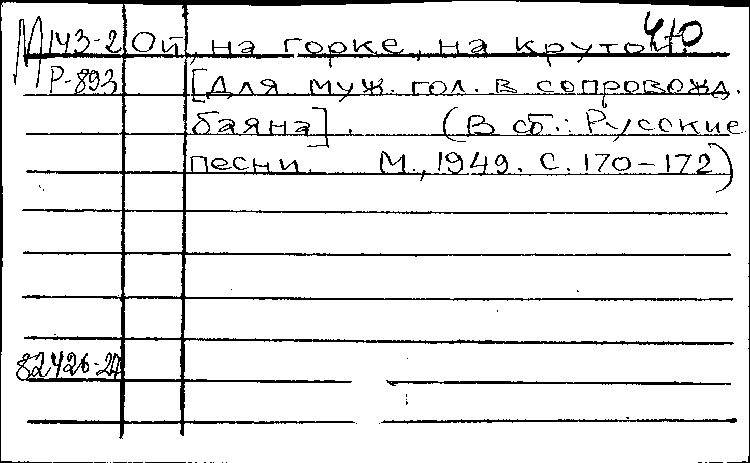 М143-2 Ой, на горке, на крутой.
Р-893 [Для муж. гол. в сопровожд.
баяна]. (В сб.: Русские
песни. М., 1949. С. 170-172)